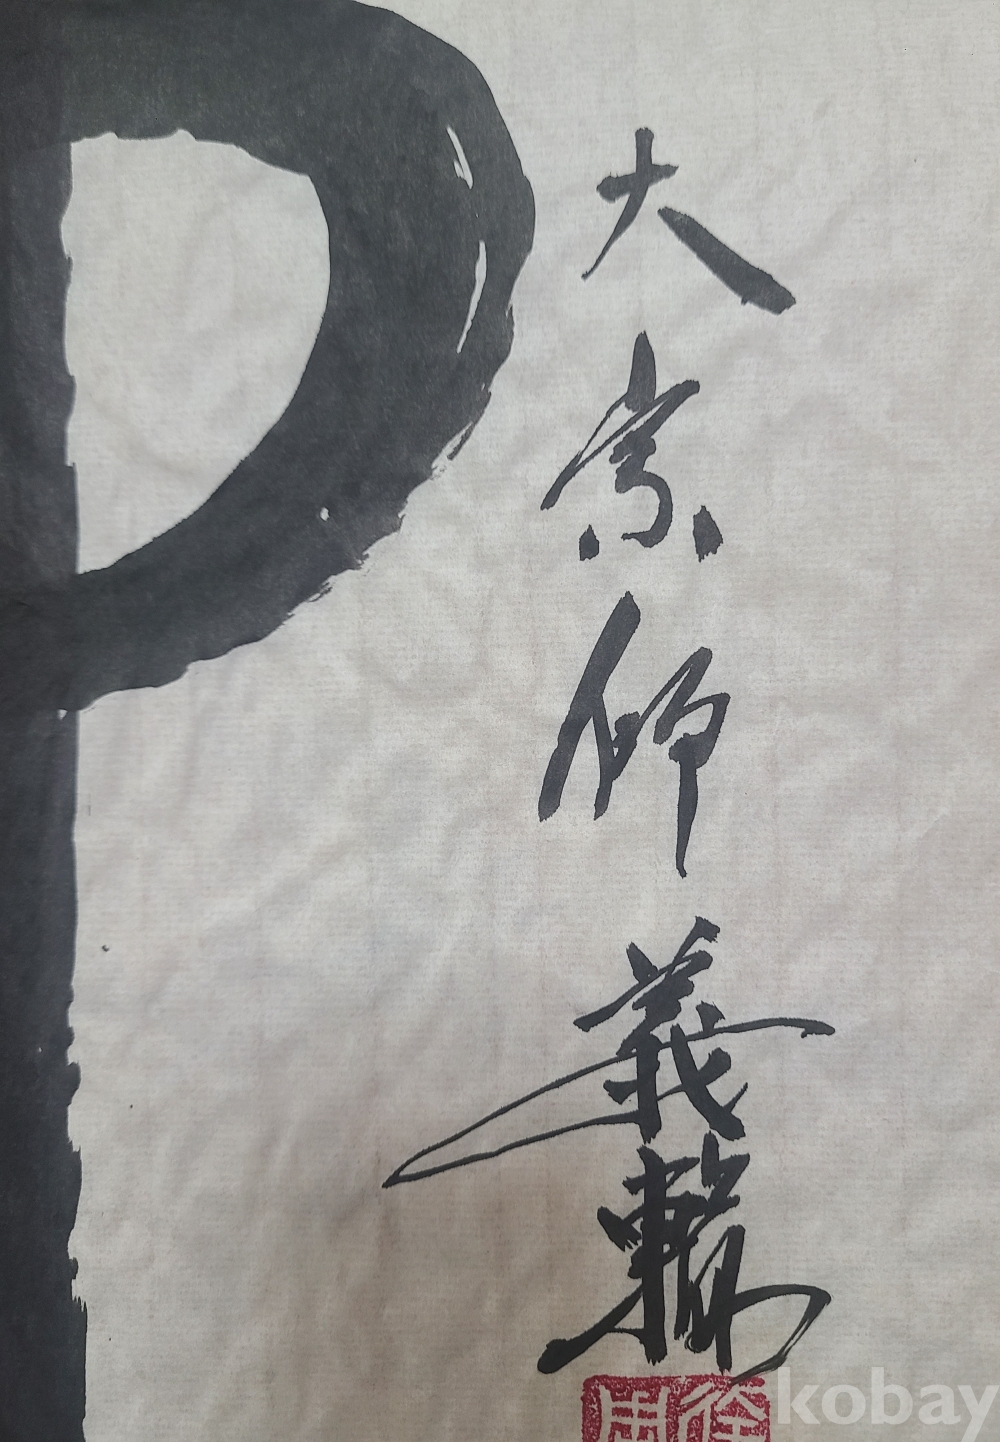 大宗師義輪
kobay